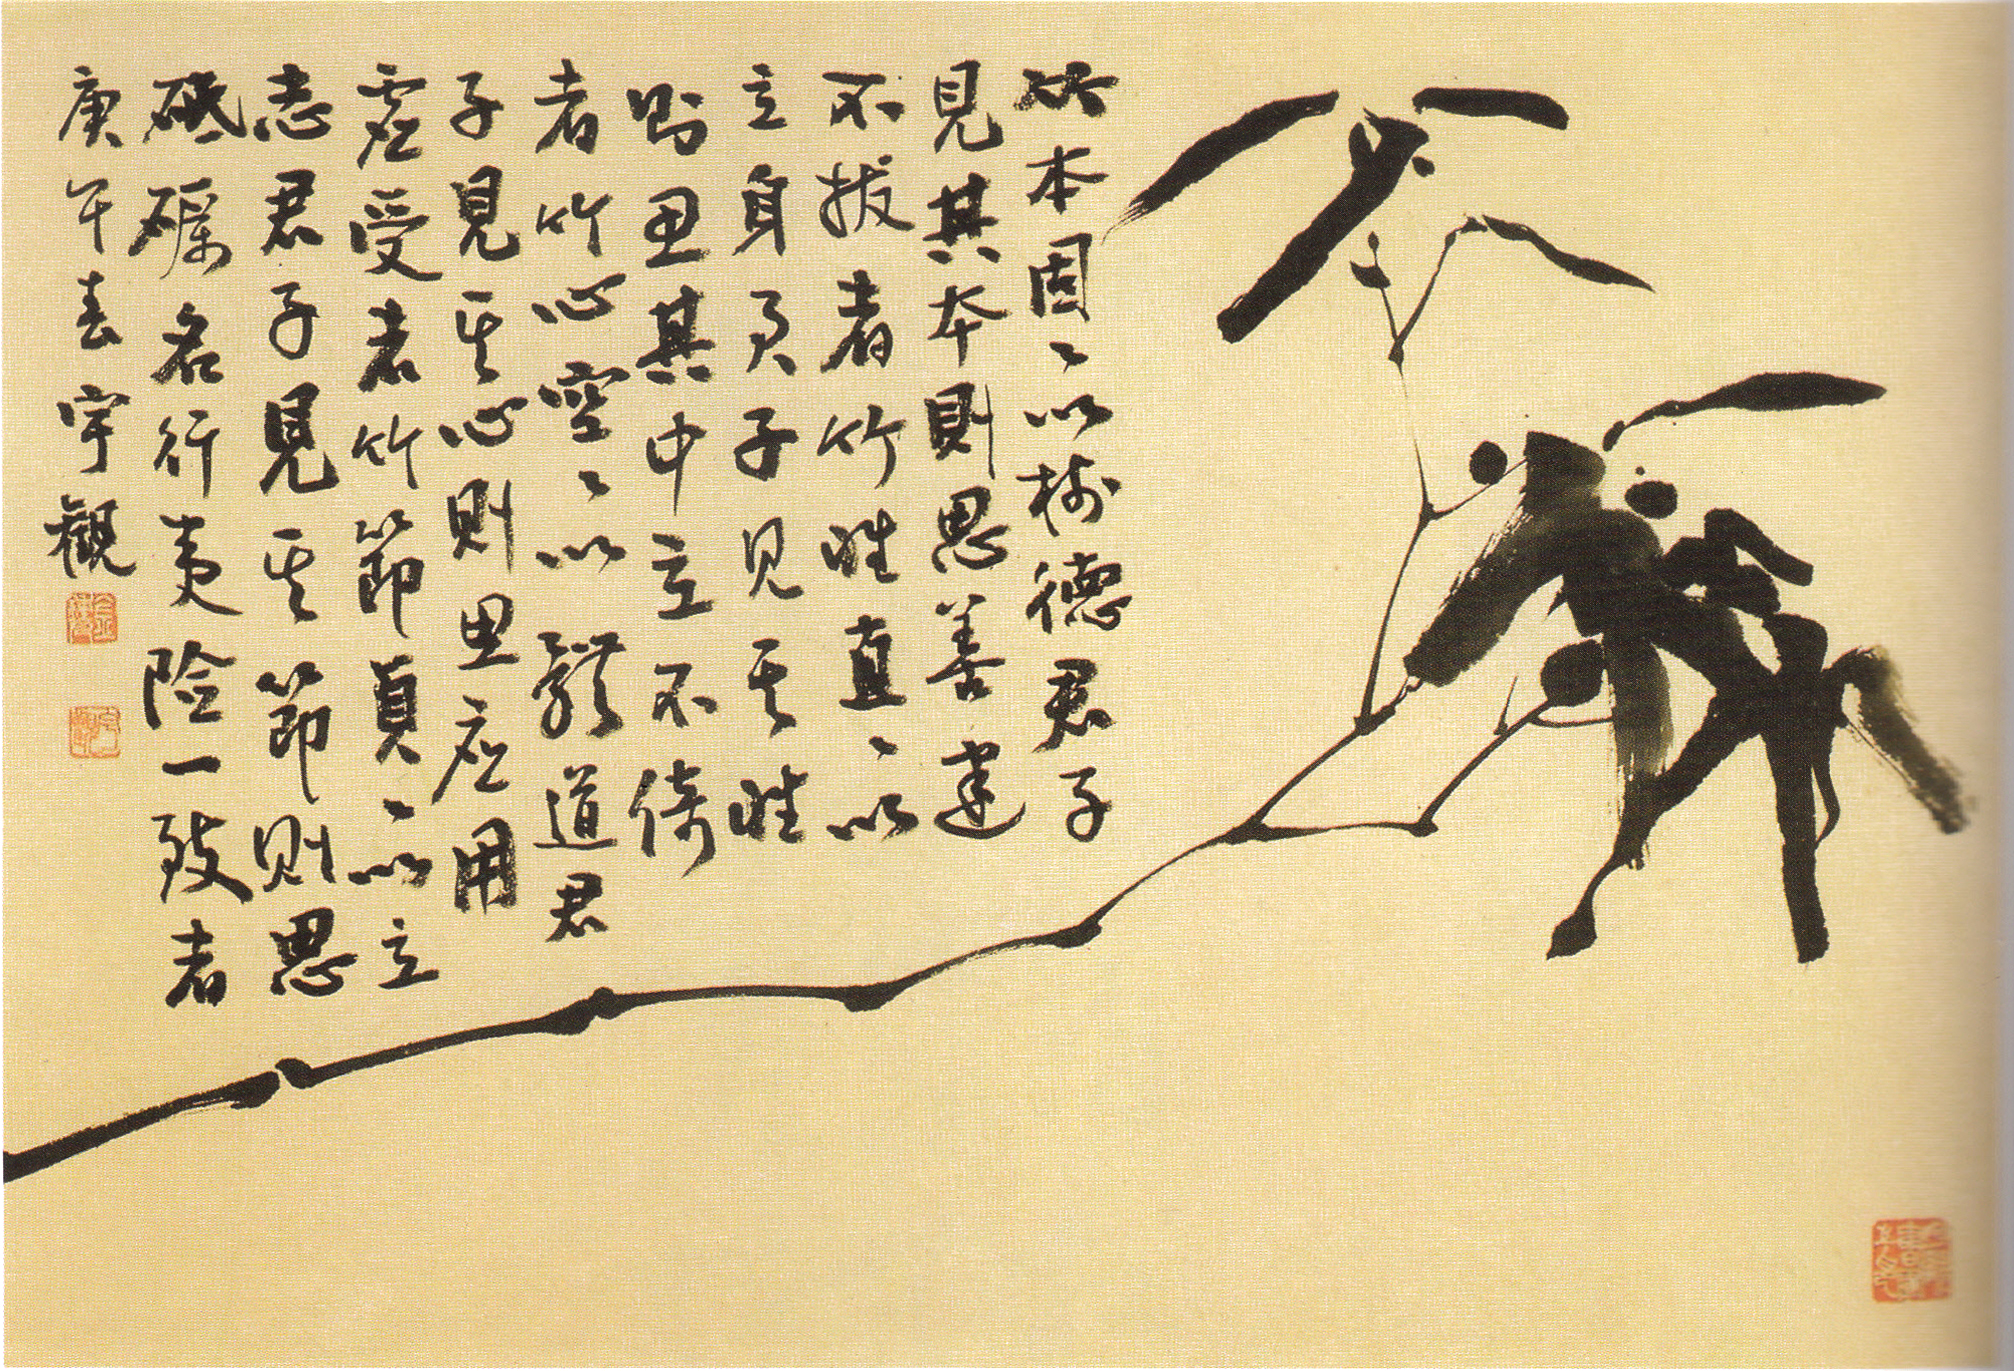 竹本固〻以樹德君子
見其本則思善建
不拔者竹性直〻以
立身君子見其性
則思其中立不倚
者竹心空〻以體道君
子見其心則思應用
虛受者竹節貞〻以立
志君子見其節則思
砥礪名行夷險一致者
庚午春宇觀